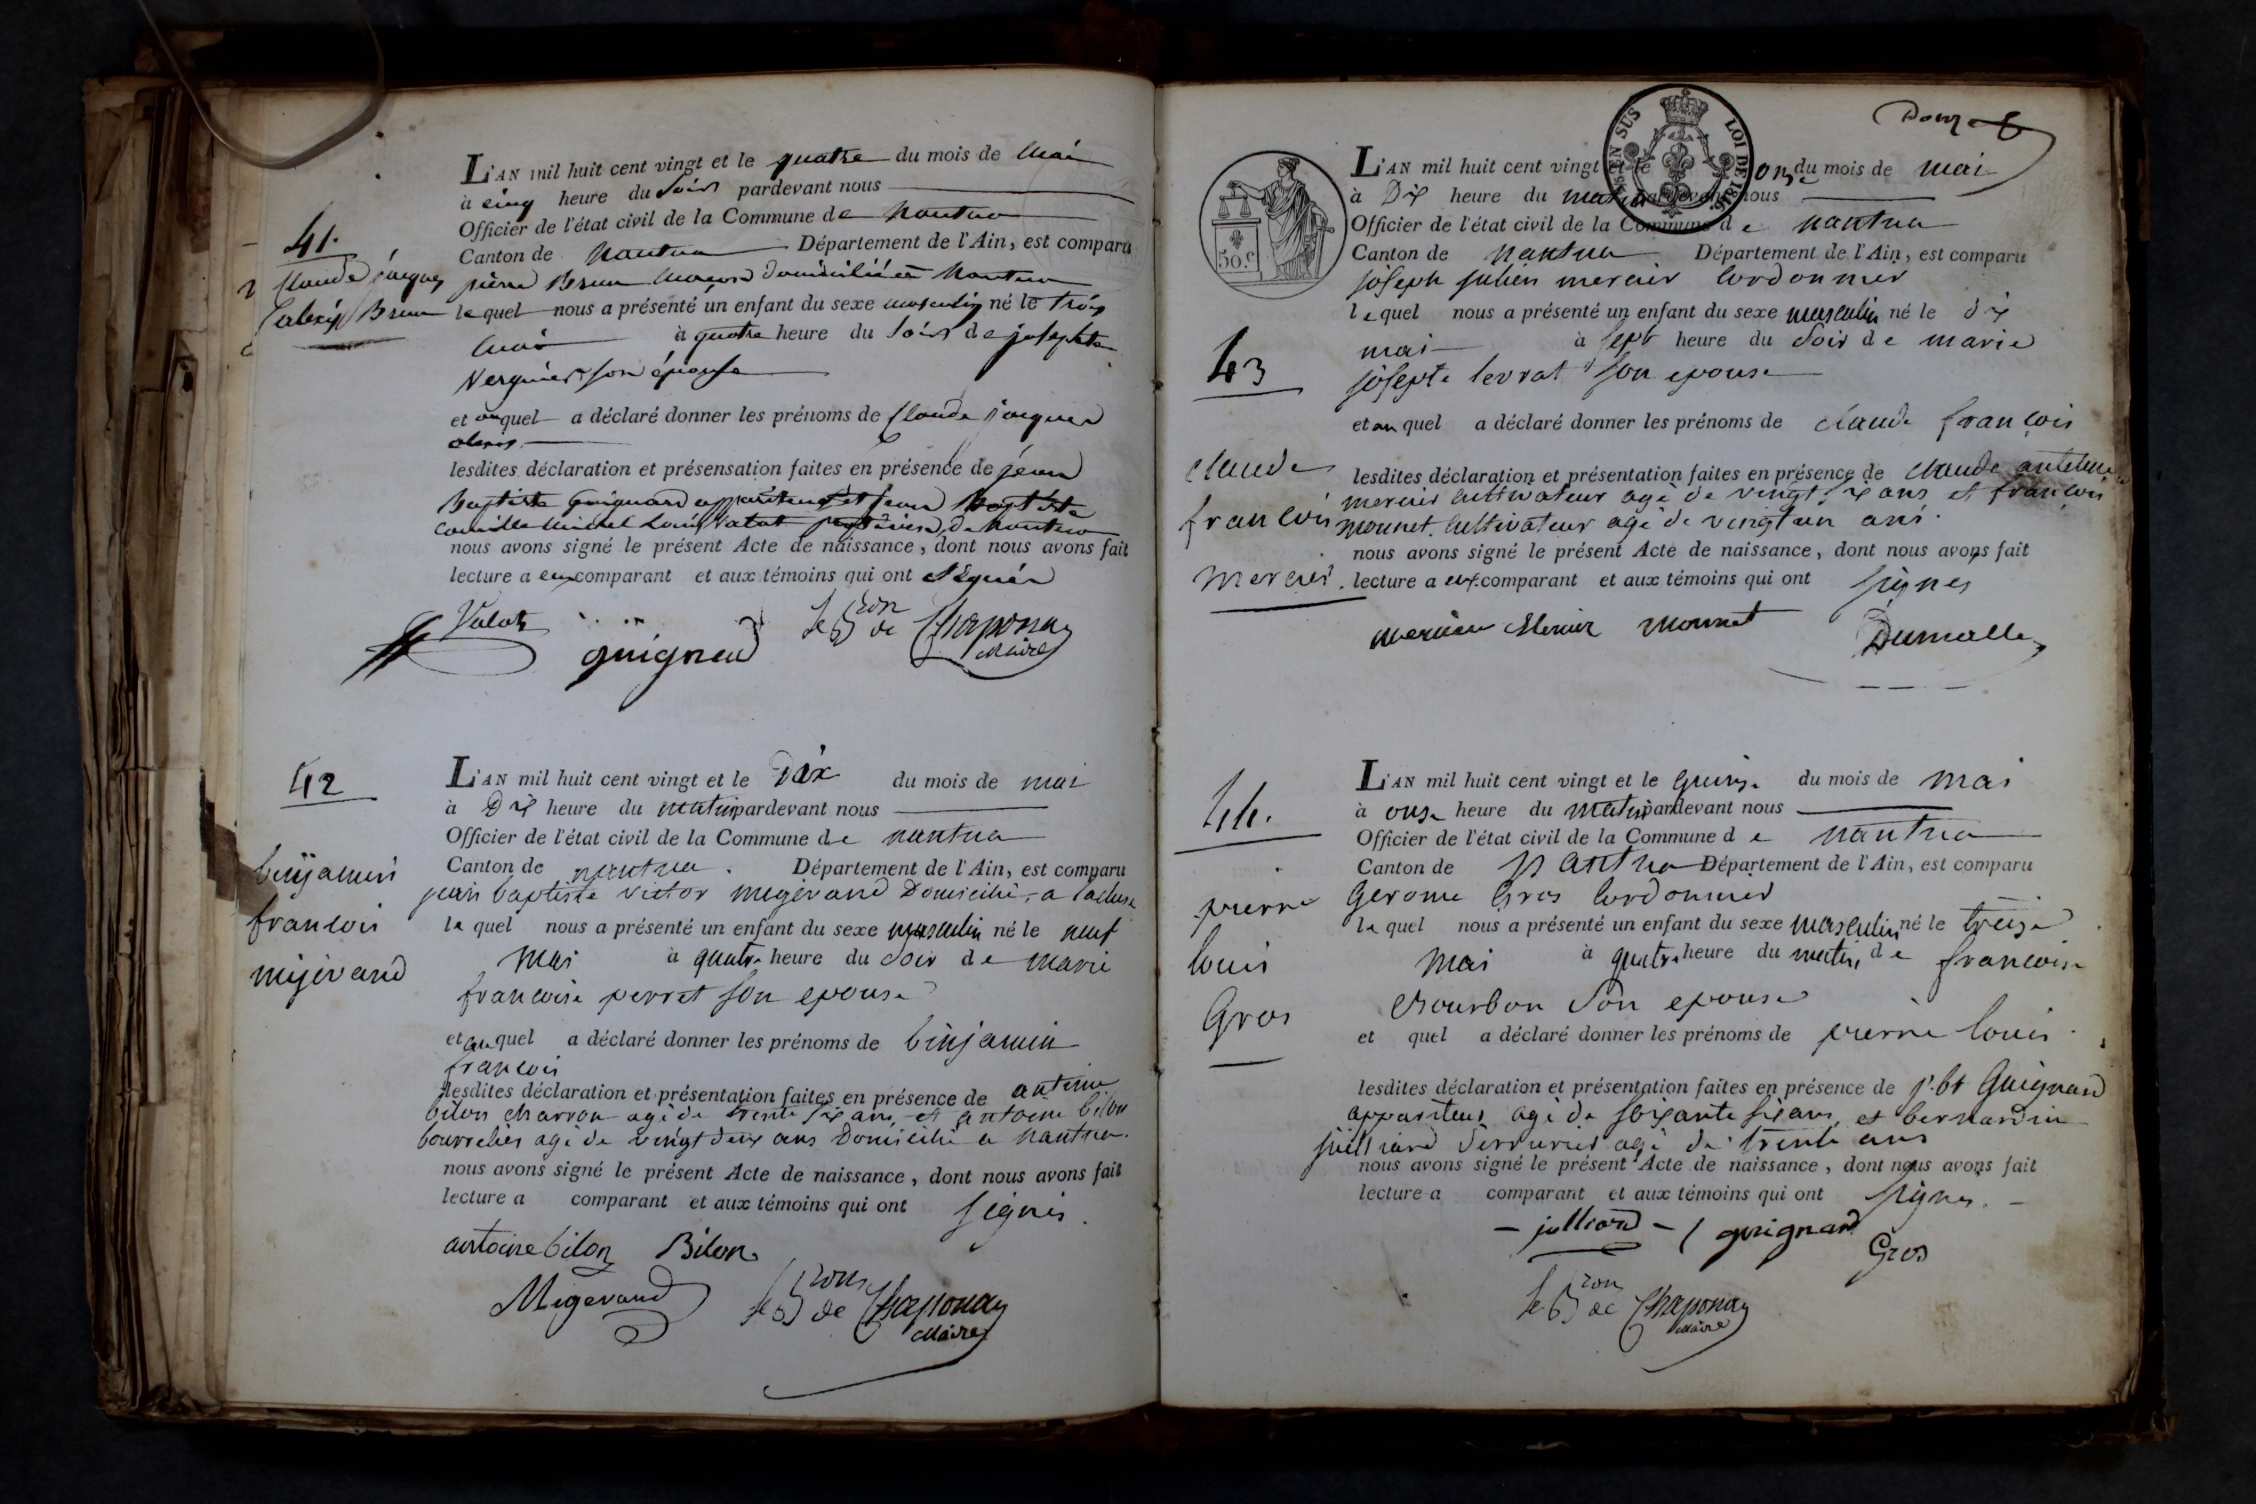 41.
Claude jacques
alexis Brun
L'AN mil huit cent vingt et le quatre du mois de Mai
à cinq heure du soir pardevant nous
Officier de l'état civil de la Commune de Nantua
Canton de Nantua Département de l'Ain, est comparu
pierre Brun domicilié a Nantua
lequel nous a présenté un enfant du sexe masculin né le trois
Mai à quatre heure du soir de josephte
son épouse
et auquel a déclaré donner les prénoms de Claude jacques
alexis
lesdites déclaration et présensation faites en présence de jean
Baptiste Guignard appariteur et jean Baptiste
Camille Michel Louis de Nantua
nous avons signé le présent Acte de naissance, dont nous avons fait
lecture a eux comparant et aux témoins qui ont signé
guignard le Bron de Chaponay
Maire
42
binjamin
francois
migerand
L'AN mil huit cent vingt et le Dix du mois de mai
à Dix heure du matin pardevant nous
Officier de l'état civil de la Commune de nantua
Canton de nantua. Département de l'Ain, est comparu
jean baptiste victor migerand Domicilié a lacluse
le quel nous a présenté un enfant du sexe masculin né le neuf
mai à quatre heure du soir de marie
francoise perret son epouse
et au quel a déclaré donner les prénoms de binjamin
francois
lesdites déclaration et présentation faites en présence de antoine
bilon charron agé de trente six ans et antoine bilon
bourrelier agé de vingt deux ans Domicilié a nantua.
nous avons signé le présent Acte de naissance, dont nous avons fait
lecture a comparant et aux témoins qui ont signés.
antoine bilon Bilon
Migerand le Bron de Chaponay
Maire
EN SUS LOI DE 1816
50.c
43
claude
francois
mercier.
L'AN mil huit cent vingt et le onze du mois de mai
à Dix heure du matin pardevant nous
Officier de l'état civil de la Commune de nantua
Canton de nantua Département de l'Ain, est comparu
joseph julien mercier Cordonnier
lequel nous a présenté un enfant du sexe masculin né le dix
mai à sept heure du soir de marie
josepte levrat son epouse
et au quel a déclaré donner les prénoms de claude françois
lesdites déclaration et présentation faites en présence de claude antelme
mercier cultivateur agé de vingt six ans et francois
mounet. cultivateur agé de vingt un ans.
nous avons signé le présent Acte de naissance, dont nous avons fait
lecture a eux comparant et aux témoins qui ont signes
mercier Mercier mounet
44.
pierre
louis
Gros
L'AN mil huit cent vingt et le quinze du mois de mai
à onze heure du matin pardevant nous
Officier de l'état civil de la Commune de nantua
Canton de nantua Département de l'Ain, est comparu
Gerome Gros Cordonnier
le quel nous a présenté un enfant du sexe masculin né le treize
mai à quatre heure du matin de francoise
Bourbon son epouse
et quel a déclaré donner les prénoms de pierre louis.
lesdites déclaration et présentation faites en présence de j. bt Guignard
appariteur agé de soixante six ans et bernardin
juilliard serrurier agé de trente ans
nous avons signé le présent Acte de naissance, dont nous avons fait
lecture a comparant et aux témoins qui ont signes.
julliard guignard
Gros
le Bron de Chaponay
Maire